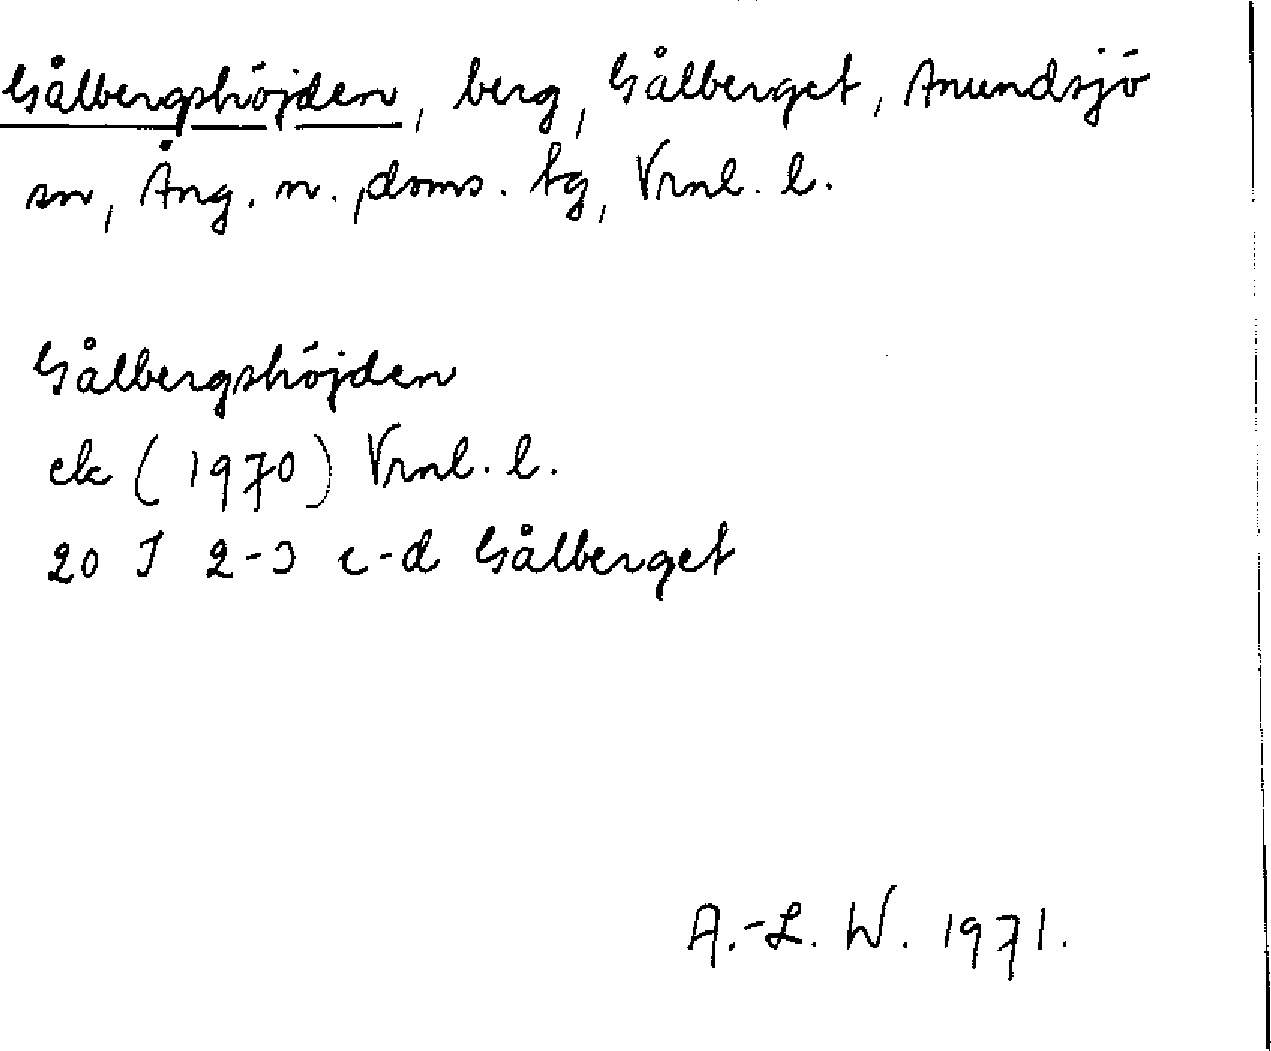 Gålbergshöjden, berg, Gålberget, Anundsjö
sn, Ång. n. doms. tg, Vrnl. l.
Gålbergshöjden
ek (1970) Vrnl. l.
20 I 2-3 c-d Gålberget
A.-L. W. 1971.